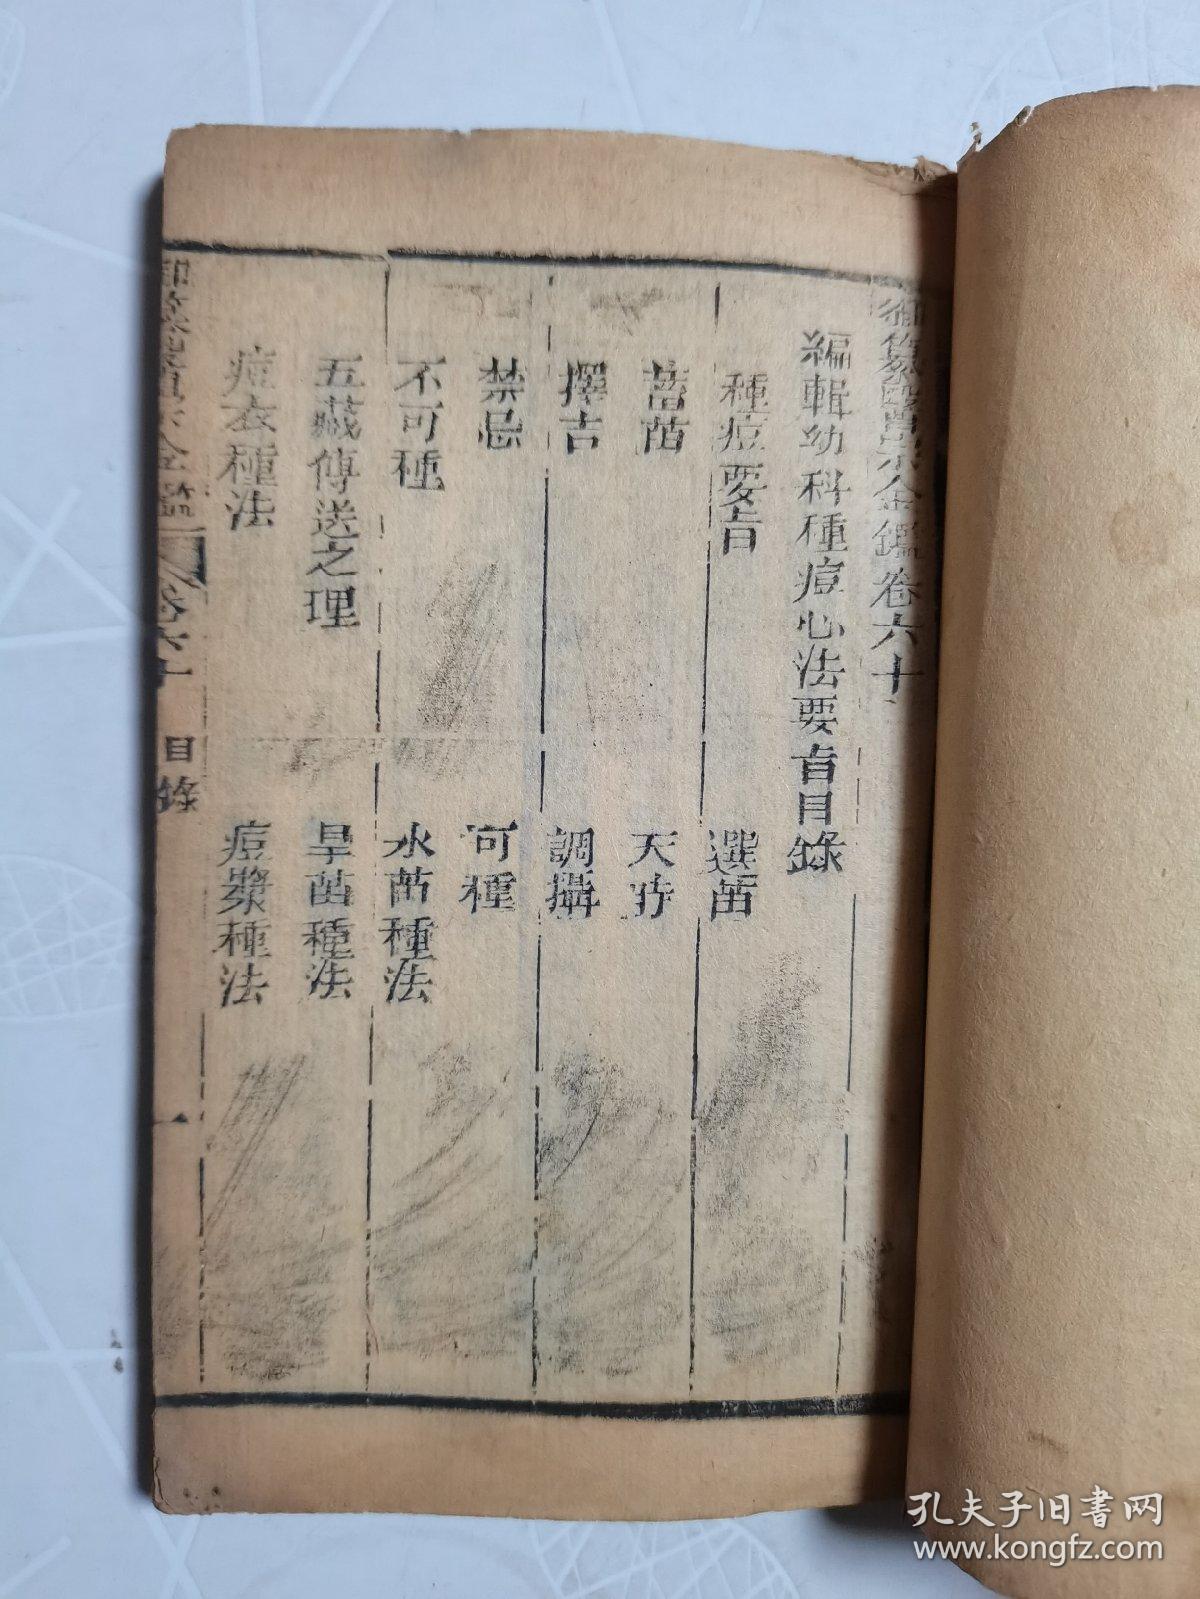 御纂醫宗金鑑卷六十
編輯幼科種痘心法要㫖目錄
種痘要㫖 選苗
蓄苗 天時
擇吉 調攝
禁忌 可種
不可種 水苗種法
五藏傳送之理 旱苗種法
痘衣種法 痘漿種法
御纂醫宗金鑑 卷六十 目錄 一
孔夫子旧书网
www.kongfz.com